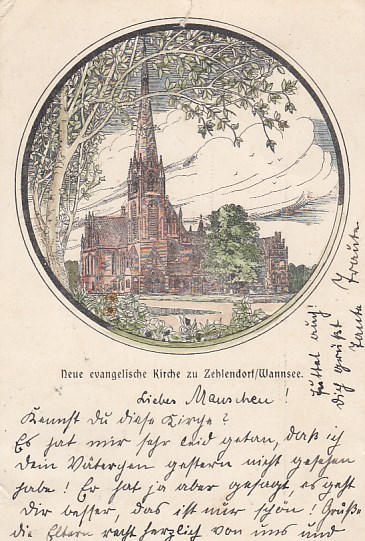 Neue evangelische Kirche zu Zehlendorf/Wannsee.
Liebes Mauschen!
Kennst Du diese Kirche?
Es hat mir sehr leid getan, daß ich
dem Väterchen gestern nicht gesehen
habe! Er hat ja aber gesagt, es geht
Dir besser, das ist mir schön! Grüße
die Eltern recht herzlich von uns und
auch!
Dich grüßt Tante
Traute